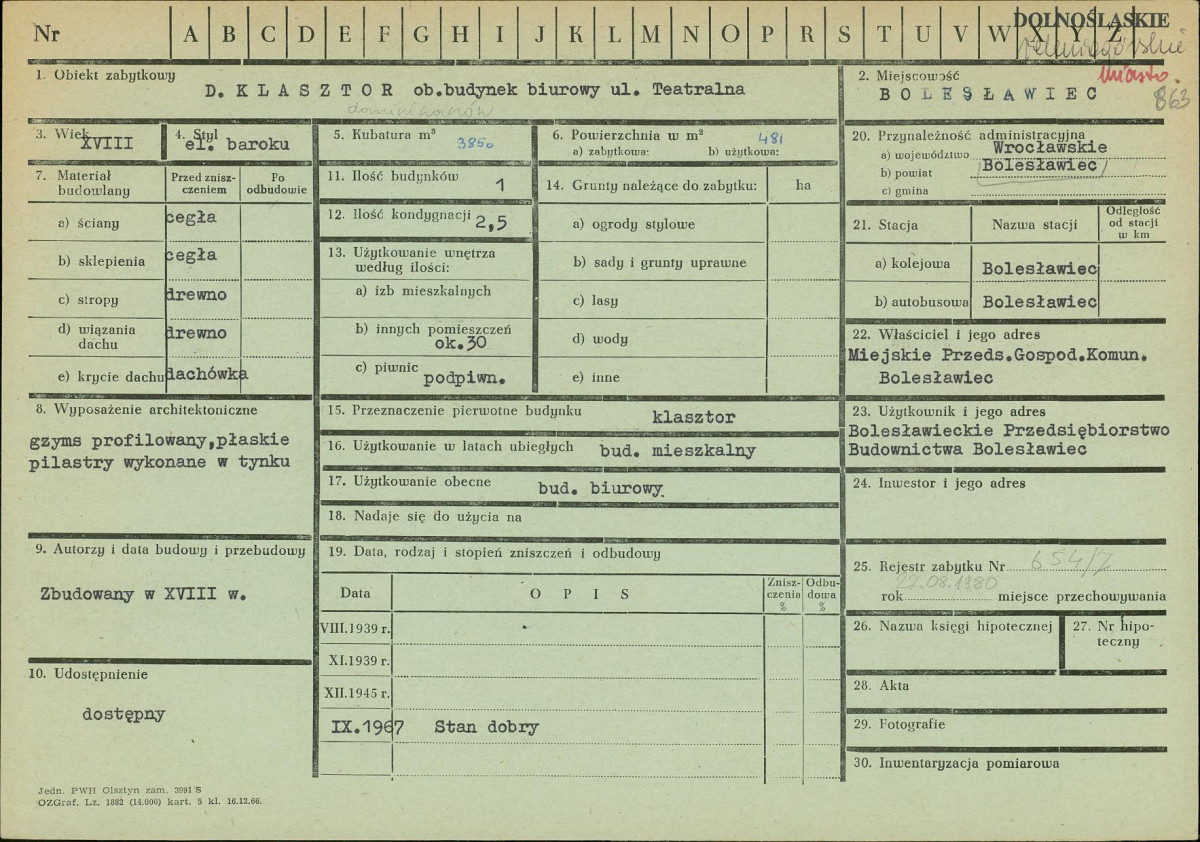 Nr A B C D E F G H I J K L M N O P R S T U V W X Y Z
DOLNOŚLĄSKIE
miasto.
863
1. Obiekt zabytkowy
D. KLASZTOR ob.budynek biurowy ul. Teatralna
dominikanów
2. Miejscowość
BOLESŁAWIEC
3. Wiek
XVIII
4. Styl
el. baroku
5. Kubatura m³
3850
6. Powierzchnia w m²
481
a) zabytkowa: b) użytkowa:
7. Materiał budowlany
Przed zniszczeniem
Po odbudowie
a) ściany cegła
b) sklepienia cegła
c) stropy drewno
d) wiązania dachu drewno
e) krycie dachu dachówka
8. Wyposażenie architektoniczne
gzyms profilowany,płaskie
pilastry wykonane w tynku
9. Autorzy i data budowy i przebudowy
Zbudowany w XVIII w.
10. Udostępnienie
dostępny
11. Ilość budynków 1
12. Ilość kondygnacji 2,5
13. Użytkowanie wnętrza
według ilości:
a) izb mieszkalnych
b) innych pomieszczeń
ok.30
c) piwnic
podpiwn.
14. Grunty należące do zabytku: ha
a) ogrody stylowe
b) sady i grunty uprawne
c) lasy
d) wody
e) inne
15. Przeznaczenie pierwotne budynku klasztor
16. Użytkowanie w latach ubiegłych bud. mieszkalny
17. Użytkowanie obecne bud. biurowy.
18. Nadaje się do użycia na
19. Data, rodzaj i stopień zniszczeń i odbudowy
Data OPIS Zniszczenia % Odbudowa %
VIII.1939 r.
XI.1939 r.
XII.1945 r.
IX.1967 Stan dobry
20. Przynależność administracyjna
a) województwo Wrocławskie
b) powiat Bolesławiec
c) gmina
21. Stacja Nazwa stacji Odległość od stacji w km
a) kolejowa Bolesławiec
b) autobusowa Bolesławiec
22. Właściciel i jego adres
Miejskie Przeds.Gospod.Komun.
Bolesławiec
23. Użytkownik i jego adres
Bolesławieckie Przedsiębiorstwo
Budownictwa Bolesławiec
24. Inwestor i jego adres
25. Rejestr zabytku Nr 654/7
22.08.1980
rok miejsce przechowywania
26. Nazwa księgi hipotecznej
27. Nr hipoteczny
28. Akta
29. Fotografie
30. Inwentaryzacja pomiarowa
Jedn. PWH Olsztyn zam. 3991 S
OZGraf. Lz. 1882 (14.000) kart. 5 kl. 16.12.66.